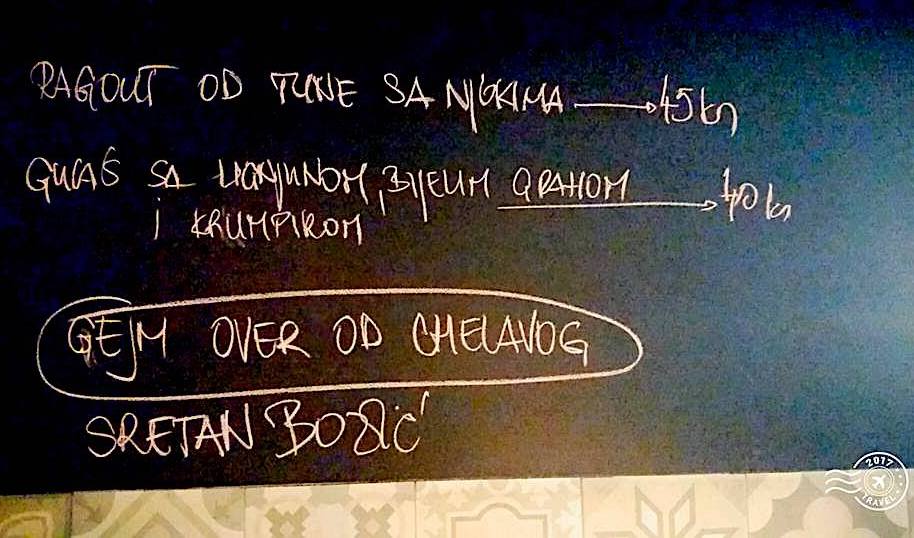 RAGOUT OD TUNE SA NJOKIMA → 45 kn
GULAŠ SA LIGNJUNOM, BIJELIM GRAHOM → 40 kn
I KRUMPIROM
GEJM OVER OD CHELAVOG
SRETAN BOŽIĆ
2017
TRAVEL